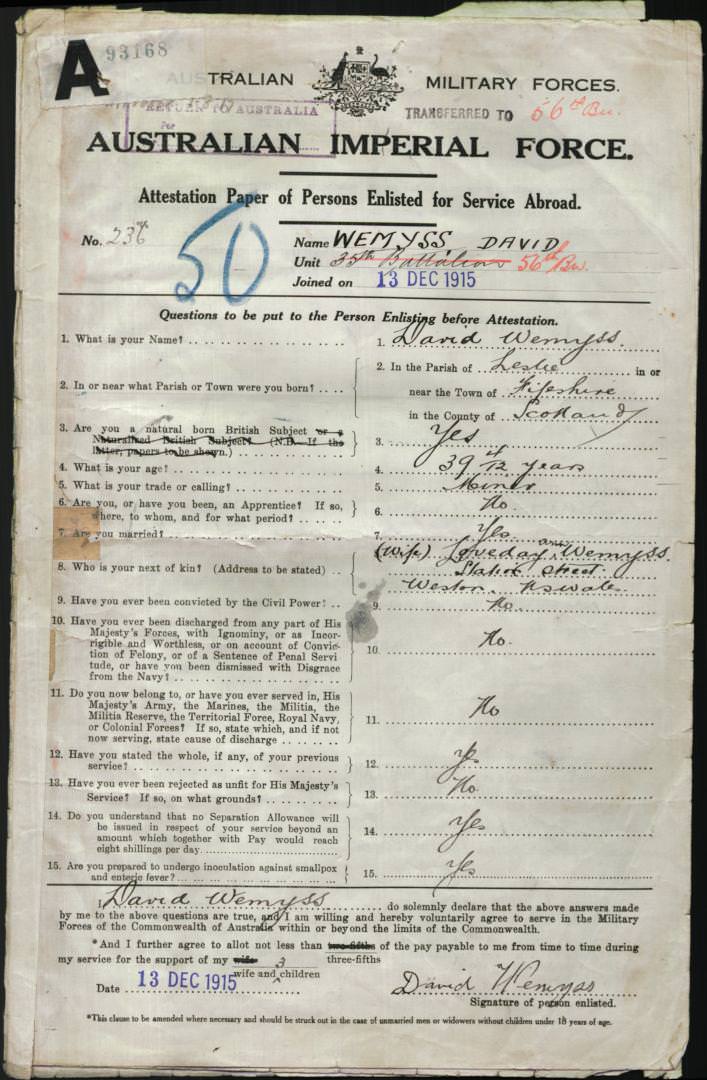 A 93168
AUSTRALIAN MILITARY FORCES.
RETURN TO AUSTRALIA
TRANSFERRED TO 56th Bn.
AUSTRALIAN IMPERIAL FORCE.
Attestation Paper of Persons Enlisted for Service Abroad.
No. 236
50
Name WEMYSS DAVID
Unit 35th Battalion 56th Bn.
Joined on 13 DEC 1915
Questions to be put to the Person Enlisting before Attestation.
1. What is your Name? 1. David Wemyss.
2. In or near what Parish or Town were you born? 2. In the Parish of Leslie in or
near the Town of Fifeshire
in the County of Scotland
3. Are you a natural born British Subject or a
Naturalized British Subject? (N.B. If the
latter, papers to be shown.) 3. Yes
4. What is your age? 4. 39 4/12 years
5. What is your trade or calling? 5. Miner
6. Are you, or have you been, an Apprentice? If so,
where, to whom, and for what period? 6. No.
7. Are you married? 7. Yes.
8. Who is your next of kin? (Address to be stated) (Wife) Loveday Ann Wemyss.
Station Street.
Weston. NSWales.
9. Have you ever been convicted by the Civil Power? 9. No.
10. Have you ever been discharged from any part of His
Majesty's Forces, with Ignominy, or as Incor-
rigible and Worthless, or on account of Convic-
tion of Felony, or of a Sentence of Penal Servi
tude, or have you been dismissed with Disgrace
from the Navy? 10. No.
11. Do you now belong to, or have you ever served in, His
Majesty's Army, the Marines, the Militia, the
Militia Reserve, the Territorial Force, Royal Navy,
or Colonial Forces? If so, state which, and if not
now serving, state cause of discharge 11. No
12. Have you stated the whole, if any, of your previous
service? 12. Yes
13. Have you ever been rejected as unfit for His Majesty's
Service? If so, on what grounds? 13. No.
14. Do you understand that no Separation Allowance will
be issued in respect of your service beyond an
amount which together with Pay would reach
eight shillings per day. 14. Yes
15. Are you prepared to undergo inoculation against smallpox
and enteric fever? 15. Yes
I, David Wemyss do solemnly declare that the above answers made
by me to the above questions are true, and I am willing and hereby voluntarily agree to serve in the Military
Forces of the Commonwealth of Australia within or beyond the limits of the Commonwealth.
*And I further agree to allot not less than two-fifths of the pay payable to me from time to time during
my service for the support of my wife 3 three-fifths
wife and children
Date 13 DEC 1915 David Wemyss
Signature of person enlisted.
*This clause to be amended where necessary and should be struck out in the case of unmarried men or widowers without children under 18 years of age.